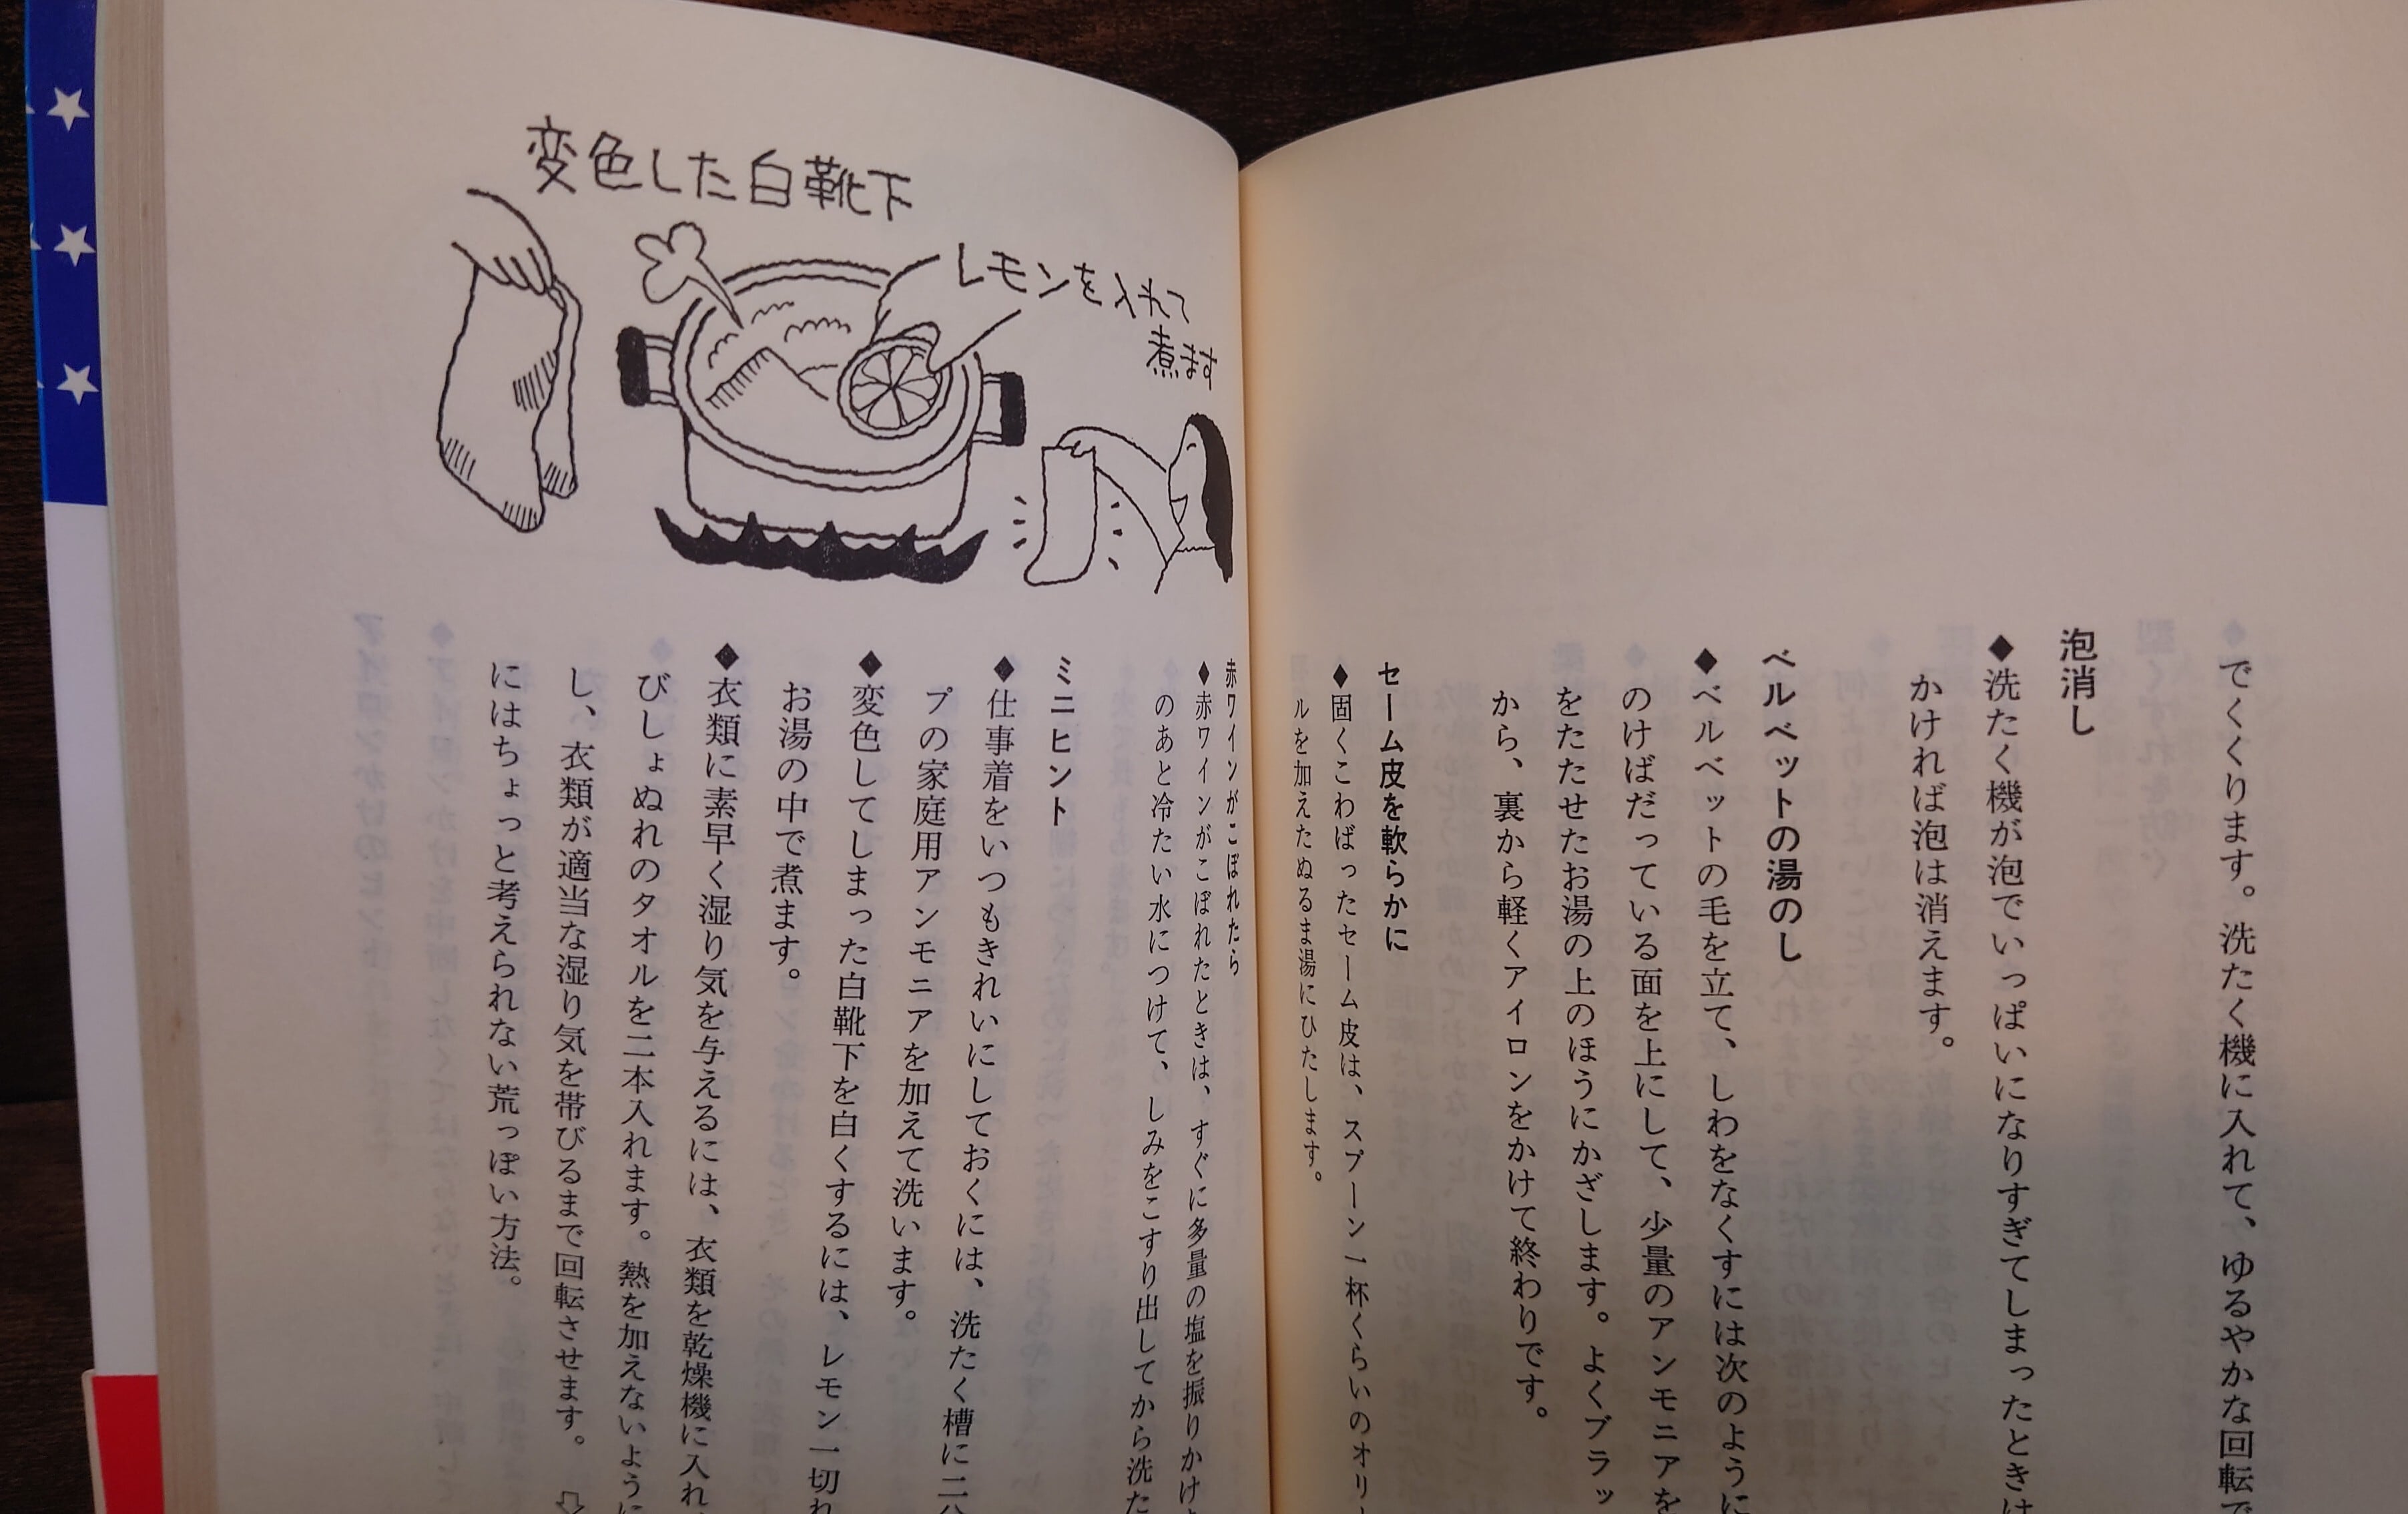 でくくります。洗たく機に入れて、ゆるやかな回転で
泡消し
◆洗たく機が泡でいっぱいになりすぎてしまったときは
かければ泡は消えます。
ベルベットの湯のし
◆ベルベットの毛を立て、しわをなくすには次のように
のけばだっている面を上にして、少量のアンモニアを
をたたせたお湯の上のほうにかざします。よくブラッ
から、裏から軽くアイロンをかけて終わりです。
セーム皮を軟らかに
◆固くこわばったセーム皮は、スプーン一杯くらいのオリー
ルを加えたぬるま湯にひたします。
変色した白靴下
レモンを入れて
煮ます
赤ワインがこぼれたら
◆赤ワインがこぼれたときは、すぐに多量の塩を振りかけ
のあと冷たい水につけて、しみをこすり出してから洗た
ミニヒント
◆仕事着をいつもきれいにしておくには、洗たく槽に二
プの家庭用アンモニアを加えて洗います。
◆変色してしまった白靴下を白くするには、レモン一切れ
お湯の中で煮ます。
◆衣類に素早く湿り気を与えるには、衣類を乾燥機に入れ
びしょぬれのタオルを二本入れます。熱を加えないように
し、衣類が適当な湿り気を帯びるまで回転させます。
にはちょっと考えられない荒っぽい方法。